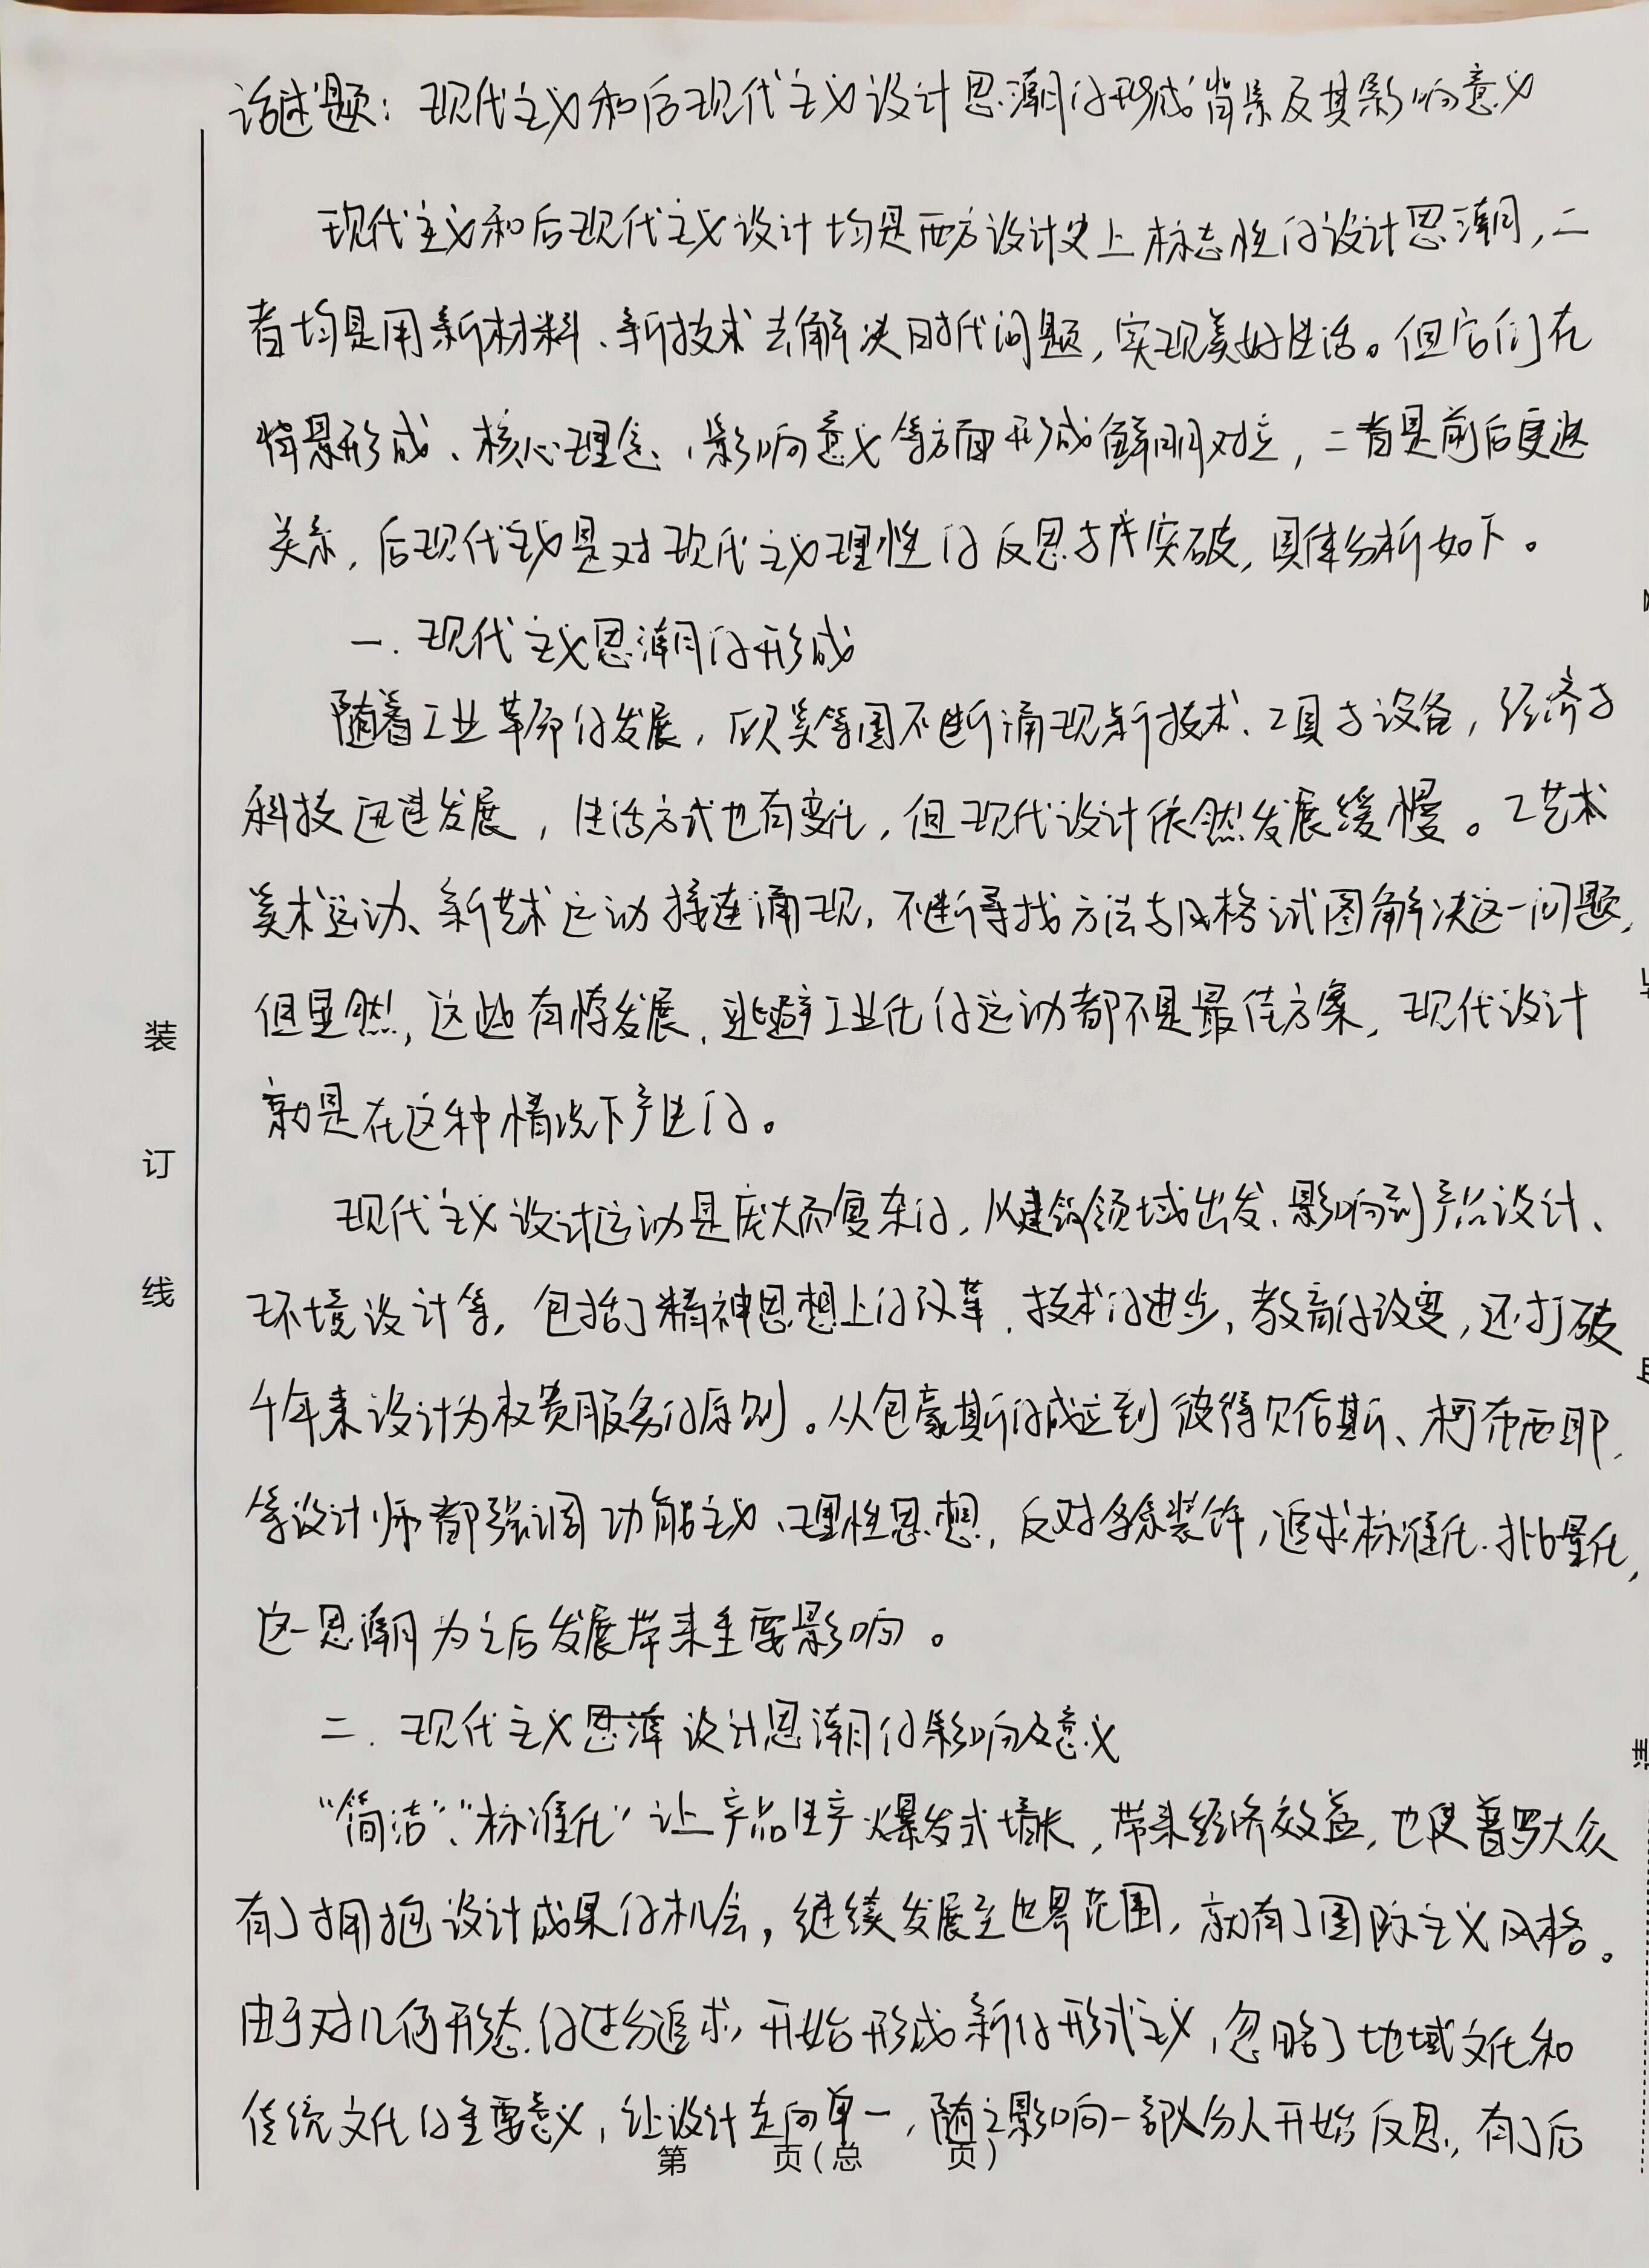 论述题：现代主义和后现代主义设计思潮的形成背景及其影响意义
现代主义和后现代主义设计均是西方设计史上标志性的设计思潮，二
者均是用新材料、新技术去解决时代问题，实现美好生活。但它们在
背景形成、核心理念、影响意义等方面形成鲜明对立，二者是前后更迭
关系，后现代主义是对现代主义理性的反思与突破，具体分析如下。
一．现代主义思潮的形成
随着工业革命的发展，欧美等国不断涌现新技术、工具与设备，经济与
科技迅速发展，生活方式也有变化，但现代设计依然发展缓慢。工艺术
美术运动、新艺术运动接连涌现，不断寻找方法与风格试图解决这一问题，
但显然，这些有悖发展、逃避工业化的运动都不是最佳方案，现代设计
就是在这种情况下产生的。
现代主义设计运动是庞大而复杂的，从建筑领域出发、影响到产品设计、
环境设计等，包括了精神思想上的改革、技术的进步、教育的改变，还打破
千年来设计为权贵服务的原则。从包豪斯的成立到彼得贝伦斯、柯布西耶
等设计师都强调功能主义、理性思想，反对多余装饰，追求标准化、批量化，
这一思潮为之后发展带来重要影响。
二．现代主义思潮 设计思潮的影响及意义
“简洁”、“标准化”让产品生产爆发式增长，带来经济效益，也使普罗大众
有了拥抱设计成果的机会，继续发展至世界范围，就有了国际主义风格。
由于对几何形态的过分追求，开始形成新的形式主义，忽略了地域文化和
传统文化的重要意义，让设计走向单一，随之影响一部分人开始反思，有了后
装
订
线
第 页（总 页）